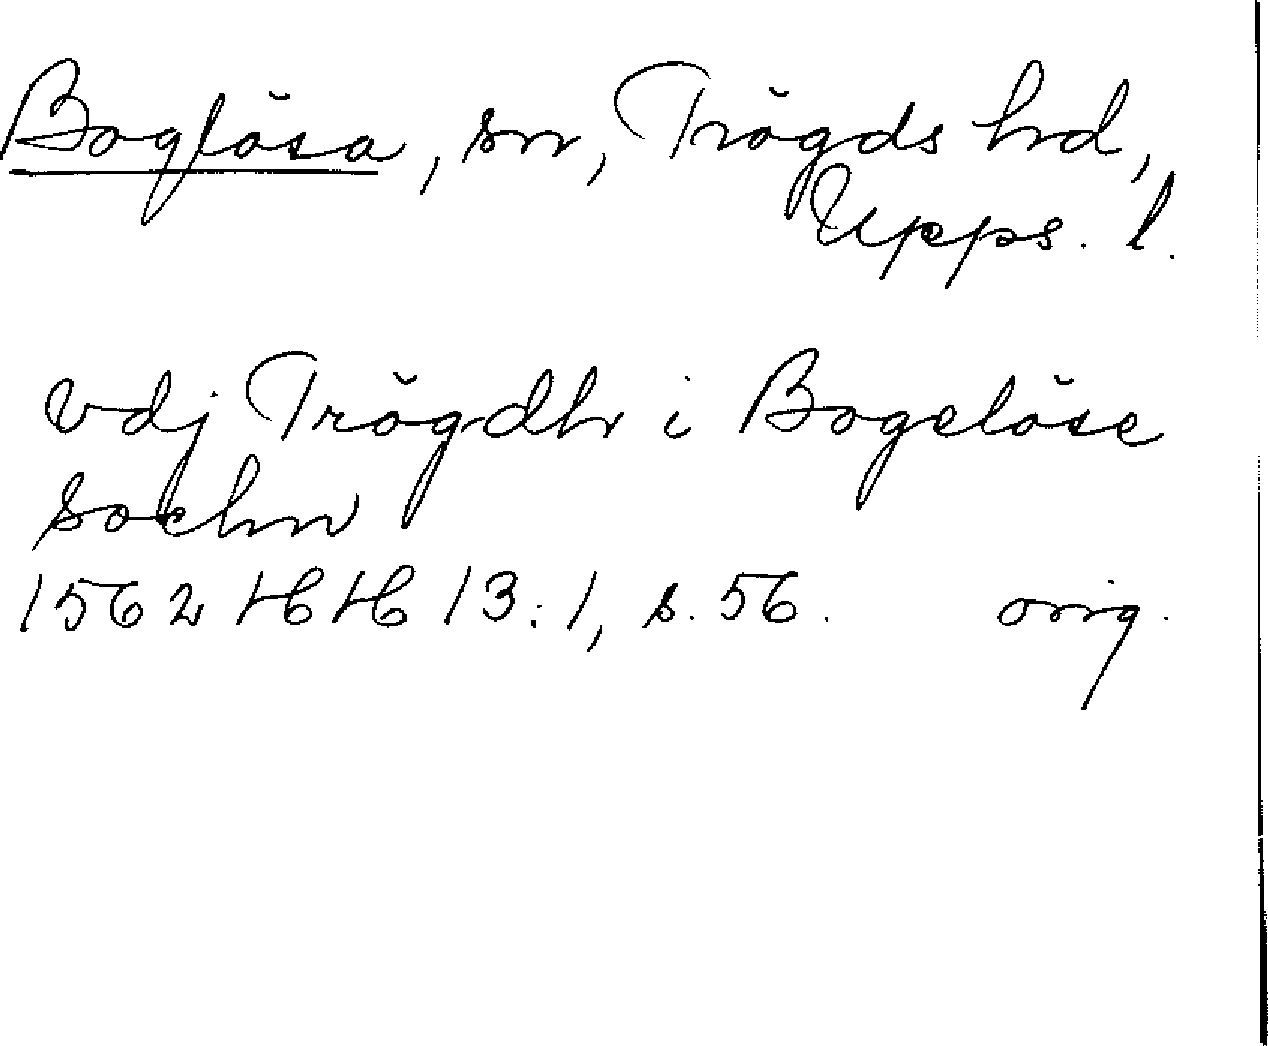 Boglösa, sn, Trögds hd,
Upps. l.
vdj Trögdh i Bogelöse
sochn
1562 HH 13:1, s. 56. orig.